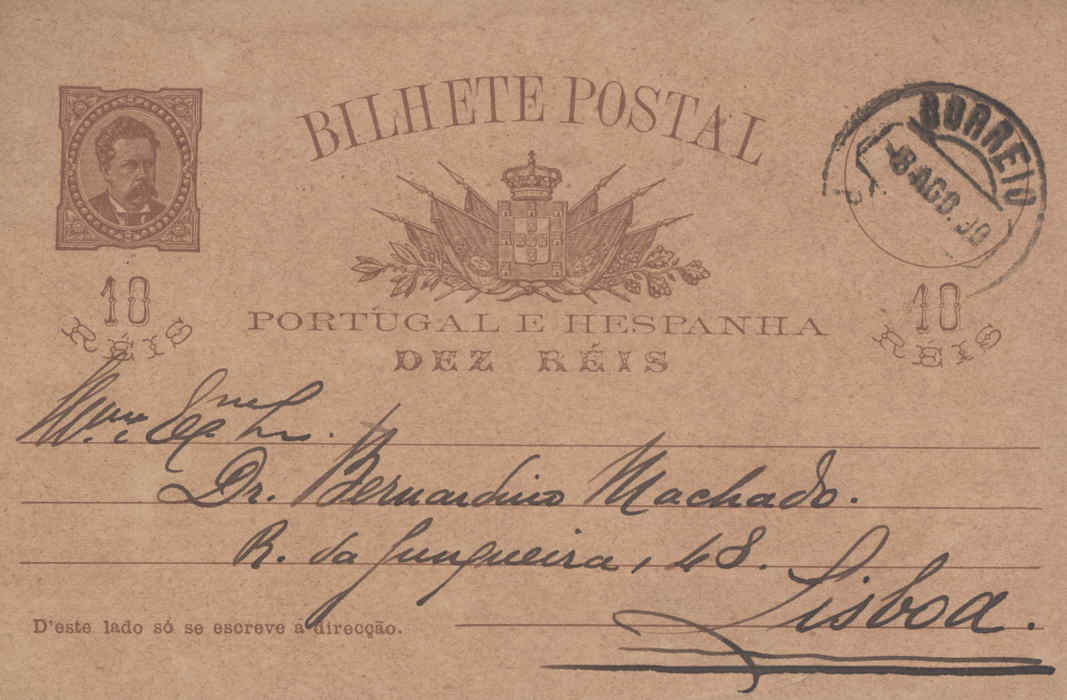 BILHETE POSTAL
CORREIO
8 AGO. 90
10 RÉIS
10 RÉIS
PORTUGAL E HESPANHA
DEZ RÉIS
Exmo Sr.
Dr. Bernardino Machado.
R. da Junqueira, 48.
Lisboa.
D'este lado só se escreve a direcção.